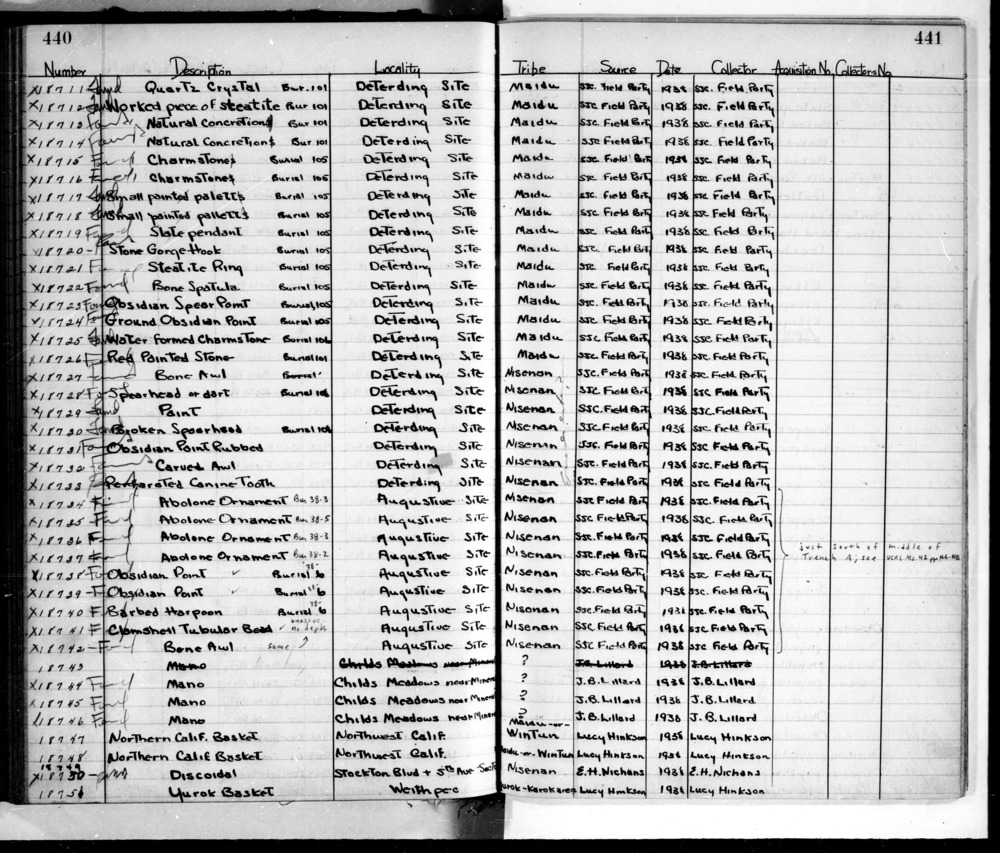 440
441
Number Description Locality Tribe Source Date Collector Acquisition No. Collectors No.
X18711 Found Quartz Crystal Bur. 101 Deterding Site Maidu SJC. Field Party 1938 SJC. Field Party
X18712 Worked piece of steatite Bur 101 Deterding Site Maidu SJC. Field Party 1938 SJC. Field Party
X18713 Found Natural Concretions Bur 101 Deterding Site Maidu SJC. Field Party 1938 SJC. Field Party
X18714 Found Natural Concretions Bur. 101 Deterding Site Maidu SJC Field Party 1938 SJC. Field Party
X18715 Found Charmstones Burial 105 Deterding Site Maidu SJC Field Party 1938 SJC. Field Party
X18716 Found Charmstones Burial 105 Deterding Site Maidu SJC Field Party 1938 SJC. Field Party
X18717 Small painted paletts Burial 105 Deterding Site Maidu SJC Field Party 1938 SJC Field Party
X18718 Small painted palletts Burial 105 Deterding Site Maidu SJC Field Party 1938 SJC Field Party
X18719 Found Slate pendant Burial 105 Deterding Site Maidu SJC Field Party 1938 SJC. Field Party
X18720 Stone Gorge Hook Burial 105 Deterding Site Maidu SJC. Field Party 1938 SJC. Field Party
X18721 Steatite Ring Burial 105 Deterding Site Maidu SJC Field Party 1938 SJC. Field Party
X18722 Found Bone Spatula Burial 105 Deterding Site Maidu SJC Field Party 1938 SJC Field Party
X18723 Found Obsidian Spear Point Burial, 105 Deterding Site Maidu SJC Field Party 1938 SJC. Field Party
X18724 Found Ground Obsidian Point Burial 105 Deterding Site Maidu SJC Field Party 1938 SJC. Field Party
X18725 Water formed Charmstone Burial 106 Deterding Site Maidu SJC Field Party 1938 SJC. Field Party
X18726 Red Painted Stone Burial 101 Deterding Site Maidu SJC. Field Party 1938 SJC. Field Party
X18727 Bone Awl Burial Deterding Site Nisenan SJC. Field Party 1938 SJC. Field Party
X18728 Spearhead or dart Burial 106 Deterding Site Nisenan SJC. Field Party 1938 SJC Field Party
X18729 Found Paint Deterding Site Nisenan SJC. Field Party 1938 SJC Field Party
X18730 Broken Spearhead Burial 106 Deterding Site Nisenan SJC. Field Party 1938 SJC Field Party
X18731 Obsidian Point Rubbed Deterding Site Nisenan SJC. Field Party 1938 SJC. Field Party
X18732 Carved Awl Deterding Site Nisenan SJC. Field Party 1938 SJC. Field Party
X18733 Perforated Canine Tooth Deterding Site Nisenan SJC. Field Party 1938 SJC. Field Party
X18734 Abolone Ornament Bur 38-3 Augustive Site Nisenan SJC Field Party 1938 SJC Field Party
X18735 Abolone Ornament Bur 38-5 Augustive Site Nisenan SJC Field Party 1938 SJC. Field Party
X18736 Abolone Ornament Bur 38-3 Augustive Site Nisenan SJC. Field Party 1938 SJC. Field Party
just South of middle of
X18737 Abolone Ornament Bur 38-2 Augustive Site Nisenan SJC. Field Party 1938 SJC. Field Party
Trench A; see UCAS No. 42
X18738 Obsidian Point ✓ Burial 38-6 Augustive Site Nisenan SJC. Field Party 1938 SJC. Field Party
X18739 Obsidian Point ✓ Burial 38-6 Augustive Site Nisenan SJC. Field Party 1938 SJC. Field Party
X18740 Barbed Harpoon Burial 38-6 Augustive Site Nisenan SJC. Field Party 1938 SJC. Field Party
X18741 Clamshell Tubular Bead ✓ unassoc no depth Augustive Site Nisenan SJC Field Party 1938 SJC Field Party
X18742 Bone Awl same ? Augustive Site Nisenan SJC Field Party 1938 SJC Field Party
18743 Mano Childs Meadows near Mineral ? J.B. Lillard 1938 J.B. Lillard
X18744 Mano Childs Meadows near Mineral ? J.B. Lillard 1938 J.B. Lillard
X18745 Mano Childs Meadows near Mineral ? J.B. Lillard 1938 J.B. Lillard
X18746 Mano Childs Meadows near Mineral ? J.B. Lillard 1938 J.B. Lillard
18747 Northern Calif. Basket Northwest Calif. Maidu-or-Wintun Lucy Hinkson 1938 Lucy Hinkson
18748 Northern Calif Basket Northwest Calif. Maidu-or-Wintun Lucy Hinkson 1938 Lucy Hinkson
18749
X18750 Discoidal Stockton Blvd + 5th Ave Nisenan E.H. Nichans 1938 E.H. Nichans
18751 Yurok Basket Weithpec Lucy Hinkson 1938 Lucy Hinkson